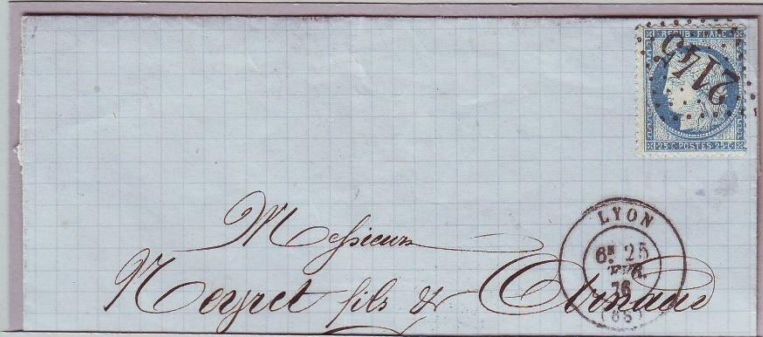 REPUB · FRANC ·
2145
25·C·POSTES·25·C
LYON
6E 25
FEVR.
76
(68)
Messieurs
Neyret fils & Arnaud